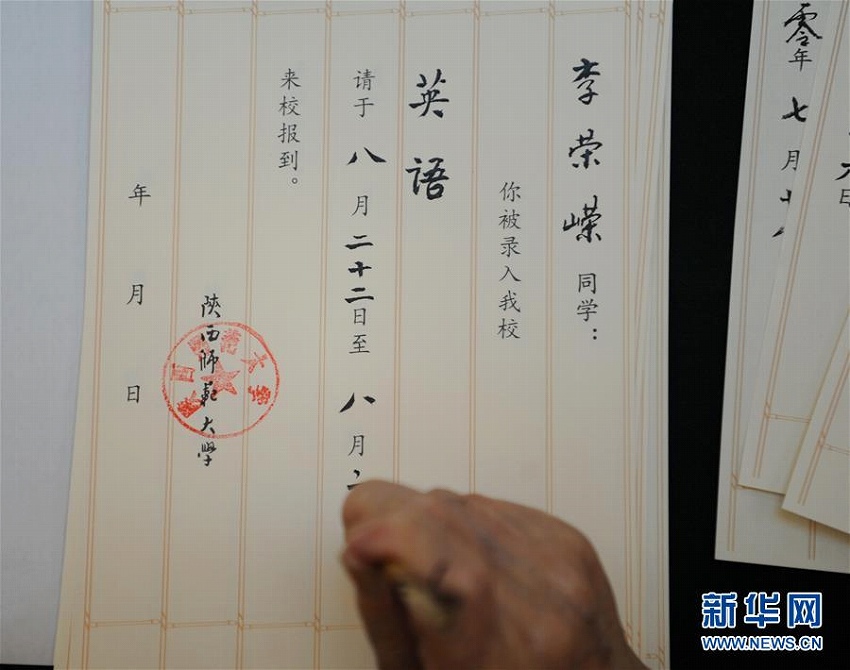 李荣嵘同学：
你被录入我校
英语
请于八月二十二日至八月二
来校报到。
陕西师範大學
年月日
零年七月
日
新华网
WWW.NEWS.CN